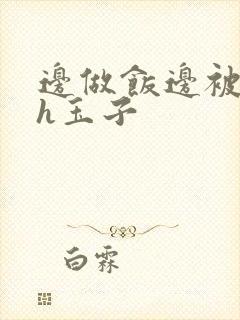 邊做飯邊被
h玉子
白霖